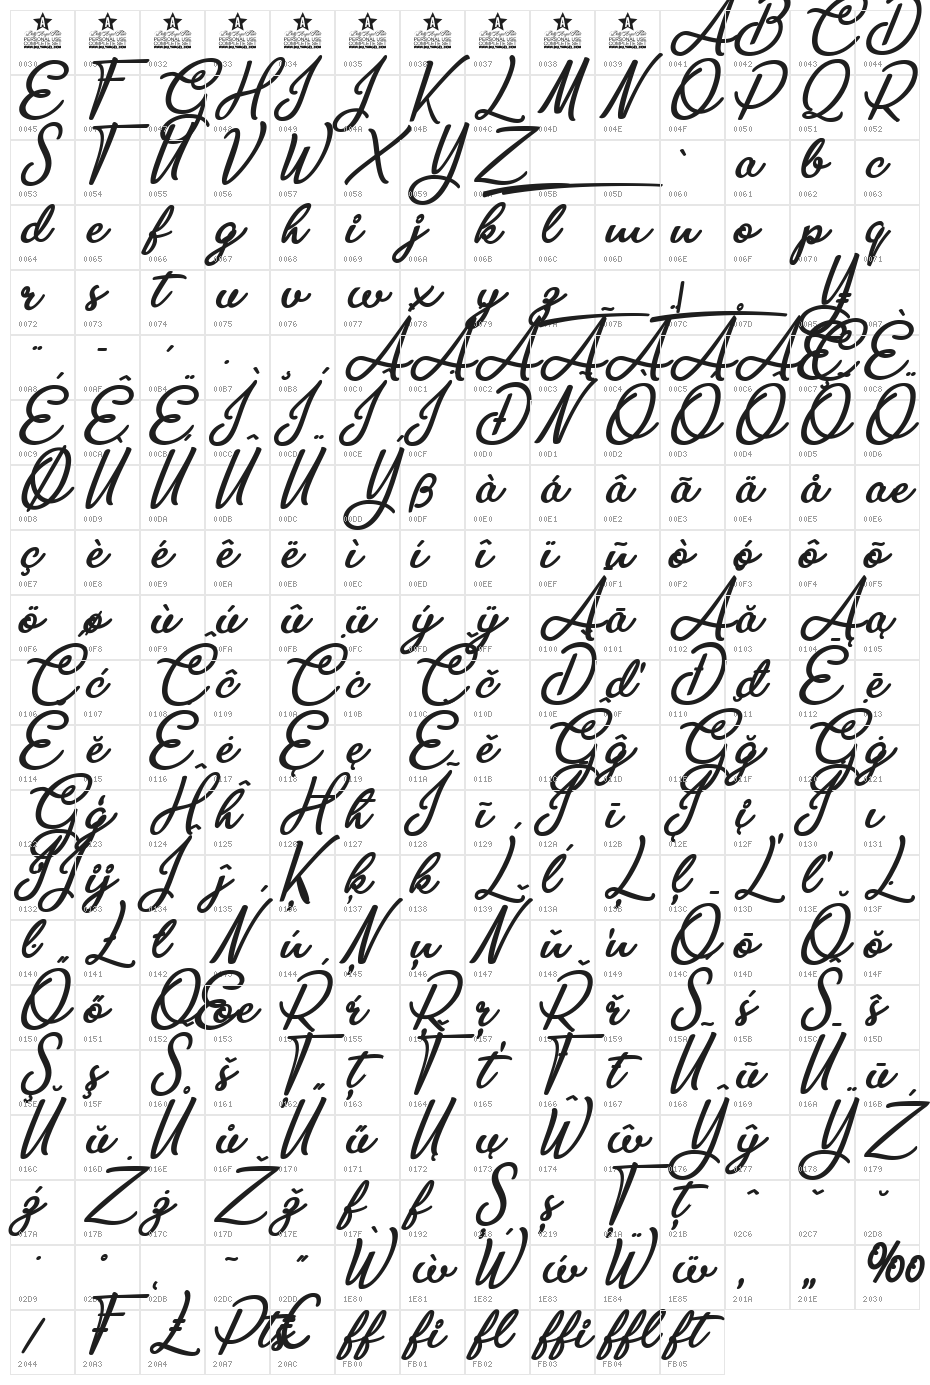 A B C D
0030 0031 0032 0033 0034 0035 0036 0037 0038 0039 0041 0042 0043 0044
E F G H I J K L M N O P Q R
0045 0046 0047 0048 0049 004A 004B 004C 004D 004E 004F 0050 0051 0052
S T U V W X Y Z ` a b c
0053 0054 0055 0056 0057 0058 0059 005A 005B 005D 0060 0061 0062 0063
d e f g h i j k l m n o p q
0064 0065 0066 0067 0068 0069 006A 006B 006C 006D 006E 006F 0070 0071
r s t u v w x y z | ¥
0072 0073 0074 0075 0076 0077 0078 0079 007A 007B 007C 007D 00A5 00A7
¨ ¯ ´ · ¸ À Á Â Ã Ä Å Æ Ç È
00A8 00AF 00B4 00B7 00B8 00C0 00C1 00C2 00C3 00C4 00C5 00C6 00C7 00C8
É Ê Ë Ì Í Î Ï Ð Ñ Ò Ó Ô Õ Ö
00C9 00CA 00CB 00CC 00CD 00CE 00CF 00D0 00D1 00D2 00D3 00D4 00D5 00D6
Ø Ù Ú Û Ü Ý ß à á â ã ä å æ
00D8 00D9 00DA 00DB 00DC 00DD 00DF 00E0 00E1 00E2 00E3 00E4 00E5 00E6
ç è é ê ë ì í î ï ñ ò ó ô õ
00E7 00E8 00E9 00EA 00EB 00EC 00ED 00EE 00EF 00F1 00F2 00F3 00F4 00F5
ö ø ù ú û ü ý ÿ Ā ā Ă ă Ą ą
00F6 00F8 00F9 00FA 00FB 00FC 00FD 00FF 0100 0101 0102 0103 0104 0105
Ć ć Ĉ ĉ Ċ ċ Č č Ď ď Đ đ Ē ē
0106 0107 0108 0109 010A 010B 010C 010D 010E 010F 0110 0111 0112 0113
Ĕ ĕ Ė ė Ę ę Ě ě Ĝ ĝ Ğ ğ Ġ ġ
0114 0115 0116 0117 0118 0119 011A 011B 011C 011D 011E 011F 0120 0121
Ģ ģ Ĥ ĥ Ħ ħ Ĩ ĩ Ī ī Į į İ ı
0122 0123 0124 0125 0126 0127 0128 0129 012A 012B 012E 012F 0130 0131
Ĳ ĳ Ĵ ĵ Ķ ķ ĸ Ĺ ĺ Ļ ļ Ľ ľ Ŀ
0132 0133 0134 0135 0136 0137 0138 0139 013A 013B 013C 013D 013E 013F
ŀ Ł ł Ń ń Ņ ņ Ň ň ŉ Ō ō Ŏ ŏ
0140 0141 0142 0143 0144 0145 0146 0147 0148 0149 014C 014D 014E 014F
Ő ő Œ œ Ŕ ŕ Ŗ ŗ Ř ř Ś ś Ŝ ŝ
0150 0151 0152 0153 0154 0155 0156 0157 0158 0159 015A 015B 015C 015D
Ş ş Š š Ţ ţ Ť ť Ŧ ŧ Ũ ũ Ū ū
015E 015F 0160 0161 0162 0163 0164 0165 0166 0167 0168 0169 016A 016B
Ŭ ŭ Ů ů Ű ű Ų ų Ŵ ŵ Ŷ ŷ Ÿ Ź
016C 016D 016E 016F 0170 0171 0172 0173 0174 0175 0176 0177 0178 0179
ź Ż ż Ž ž f f Ș ș Ț ț ˆ ˇ ˘
017A 017B 017C 017D 017E 017F 0192 0218 0219 021A 021B 02C6 02C7 02D8
˙ ˚ ˛ ˜ ˝ Ẁ ẁ Ẃ ẃ Ẅ ẅ ‚ „ ‰
02D9 02DA 02DB 02DC 02DD 1E80 1E81 1E82 1E83 1E84 1E85 201A 201E 2030
⁄ ₣ ₤ Pts € ff fi fl ffi ffl ft
2044 20A3 20A4 20A7 20AC FB00 FB01 FB02 FB03 FB04 FB05